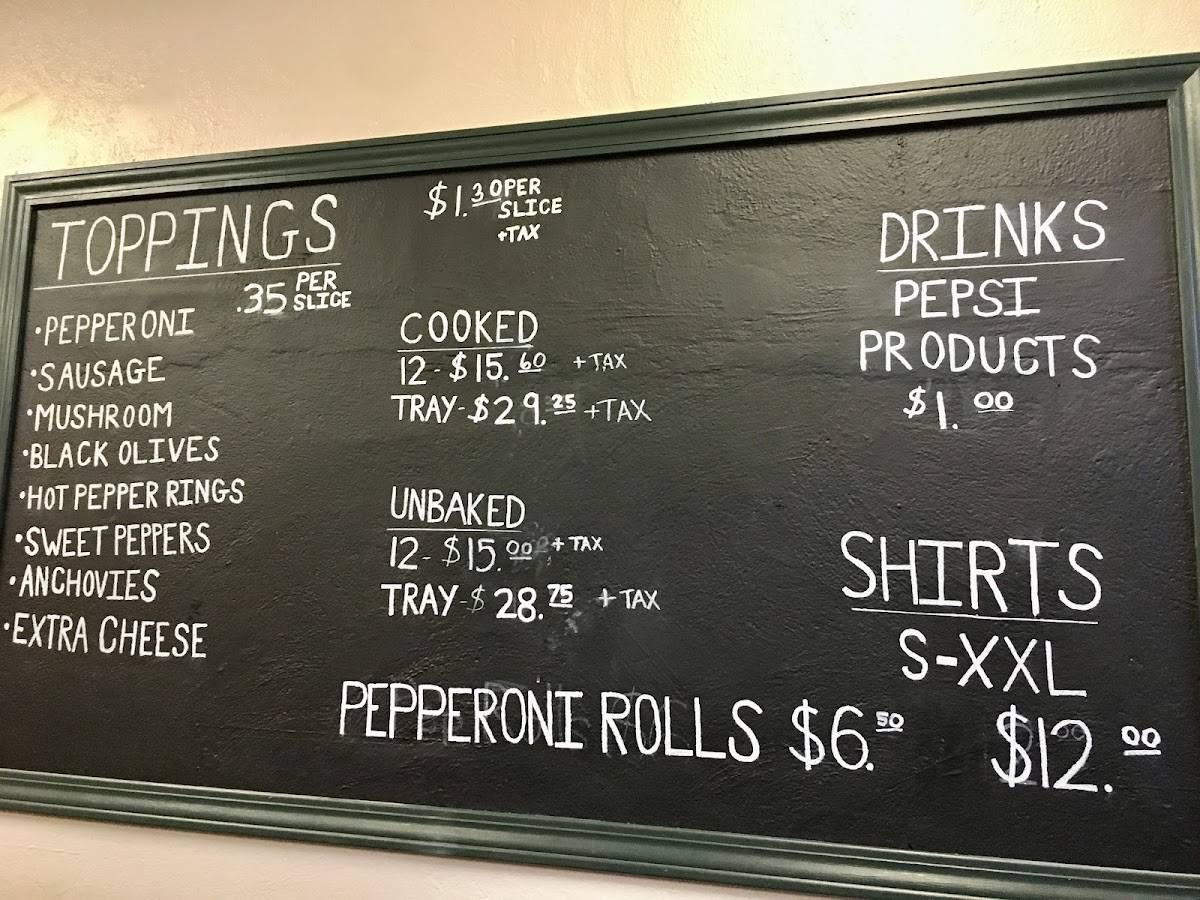 TOPPINGS
.35 PER SLICE
•PEPPERONI
•SAUSAGE
•MUSHROOM
•BLACK OLIVES
•HOT PEPPER RINGS
•SWEET PEPPERS
•ANCHOVIES
•EXTRA CHEESE
$1.30 PER
SLICE
+TAX
COOKED
12-$15.60 +TAX
TRAY-$29.25 +TAX
UNBAKED
12-$15.00 +TAX
TRAY-$28.75 +TAX
PEPPERONI ROLLS $6.50
DRINKS
PEPSI
PRODUCTS
$1.00
SHIRTS
S-XXL
$12.00